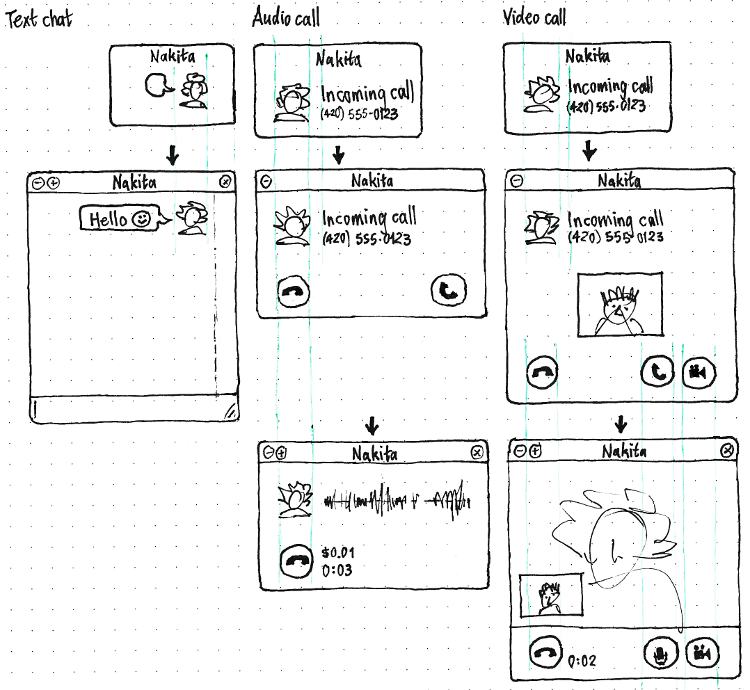 Text chat
Nakita
Nakita
Hello
Audio call
Nakita
Incoming call
(420) 555-0123
Nakita
Incoming call
(420) 555-0123
Nakita
$0.01
0:03
Video call
Nakita
Incoming call
(420) 555-0123
Nakita
Incoming call
(420) 555-0123
Nakita
0:02